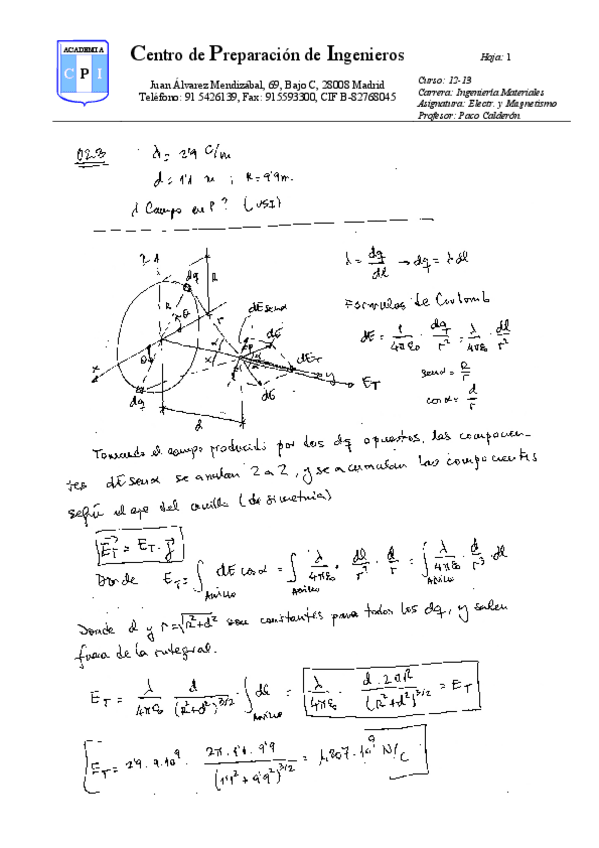 ACADEMIA
CPI
Centro de Preparación de Ingenieros
Hoja: 1
Juan Álvarez Mendizábal, 69, Bajo C, 28008 Madrid
Teléfono: 91 5426139, Fax: 915593300, CIF B-82768045
Curso: 12-13
Carrera: Ingeniería Materiales
Asignatura: Electr. y Magnetismo
Profesor: Paco Calderón
λ = 2'9 C/m
d = 1'1 m ; R = 9'9 m.
¿ Campo en P? (USI)
λ = dq/dl → dq = λ dl
Fórmulas de Coulomb
dE = 1/4πε₀ · dq/r² = λ/4πε₀ · dl/r²
senα = R/r
cosα = d/r
dq
R
R
θ
r
dE senα
dE
α
α
P
dE_T
y
E_T
x
θ
dq
dE
d
Tomando el campo producido por dos dq opuestos, las componen-
tes dE senα se anulan 2 a 2, y se acumulan las componentes
según el eje del anillo (de simetría)
E_T = E_T · j
Donde E_T = ∫ANILLO dE cosα = ∫ANILLO λ/4πε₀ · dl/r² · d/r = ∫ANILLO λ/4πε₀ · d/r³ · dl
Donde d y r = √(R²+d²) son constantes para todos los dq, y salen
fuera de la integral.
E_T = λ/4πε₀ · d/(R²+d²)^3/2 · ∫Anillo dl = λ/4πε₀ · d·2πR/(R²+d²)^3/2 = E_T
E_T = 2'9 · 9·10⁹ · 2π·1'1·9'9/(1'1²+9'9²)^3/2 = 1,807·10⁹ N/C